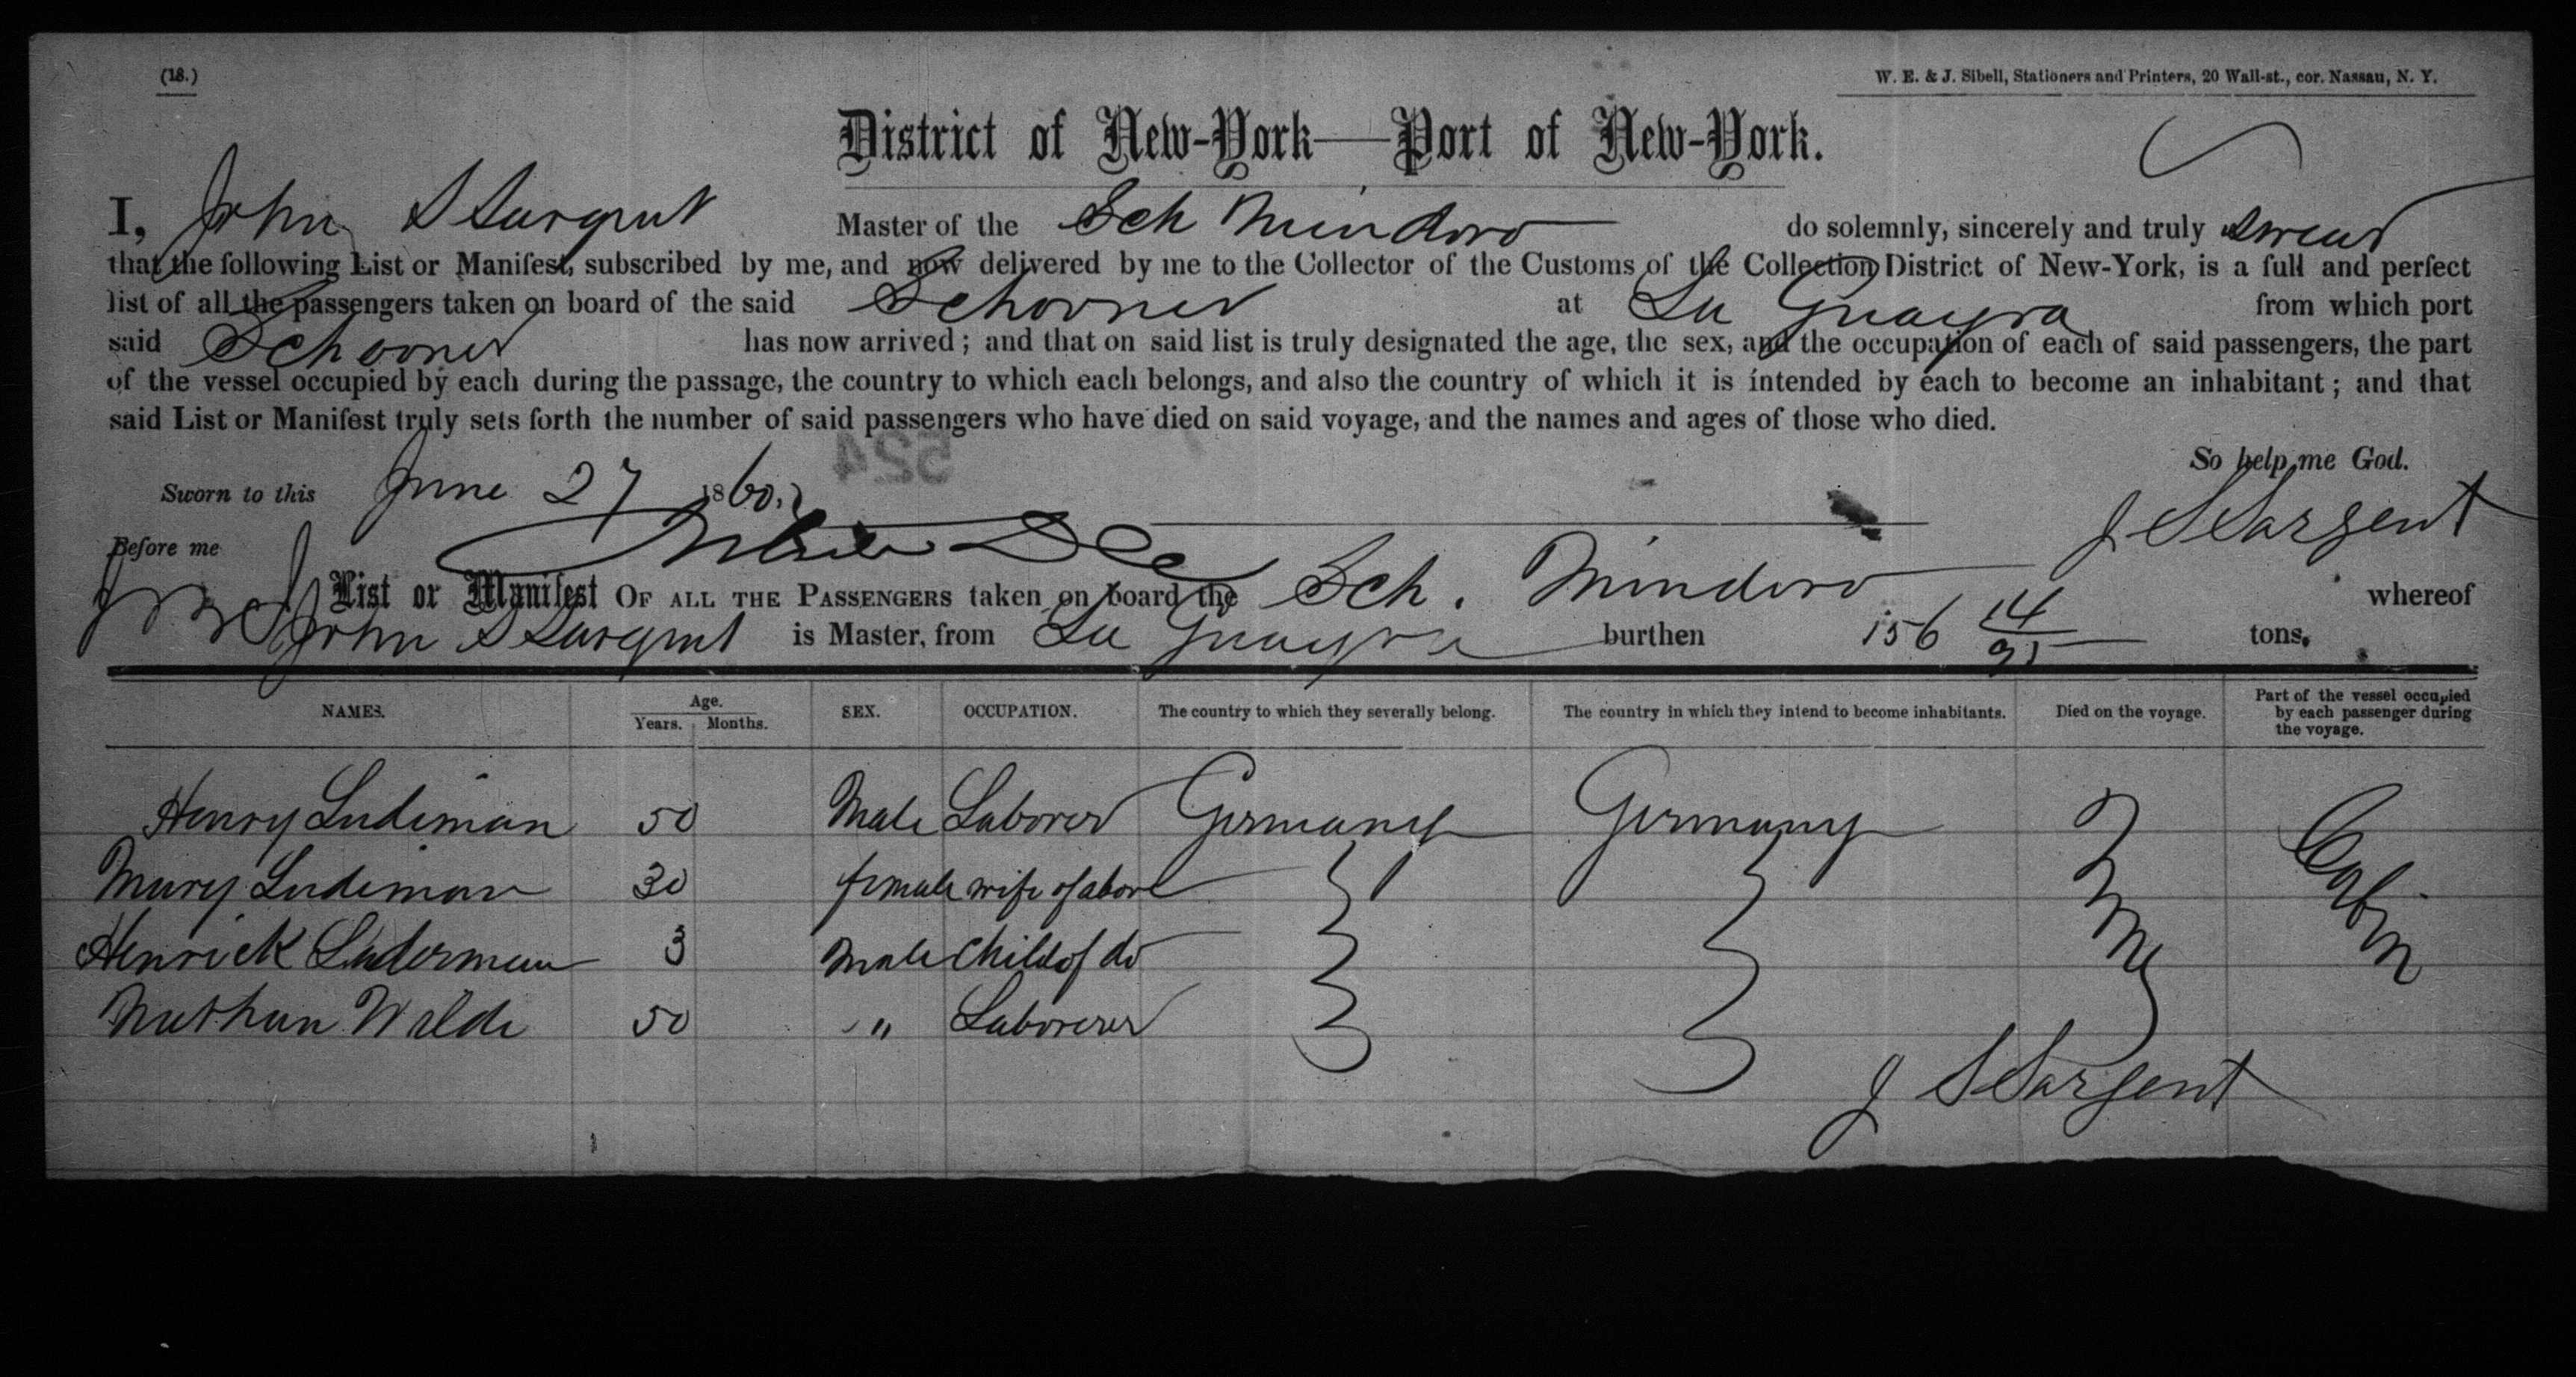 (18.)
W. E. & J. Sibell, Stationers and Printers, 20 Wall-st., cor. Nassau, N. Y.
District of New-York—Port of New-York.
I, John S Sargent Master of the Sch Mindoro do solemnly, sincerely and truly swear
that the following List or Manifest, subscribed by me, and now delivered by me to the Collector of the Customs of the Collection District of New-York, is a full and perfect
list of all the passengers taken on board of the said Schooner at La Guayra from which port
said Schooner has now arrived; and that on said list is truly designated the age, the sex, and the occupation of each of said passengers, the part
of the vessel occupied by each during the passage, the country to which each belongs, and also the country of which it is intended by each to become an inhabitant; and that
said List or Manifest truly sets forth the number of said passengers who have died on said voyage, and the names and ages of those who died.
524
So help me God.
Sworn to this June 27 1860.
J S Sargent
Before me
List or Manifest OF ALL THE PASSENGERS taken on board the Sch. Mindoro whereof
John S Sargent is Master, from La Guayra burthen 156 14/95 tons.
NAMES. Age. Years. Months. SEX. OCCUPATION. The country to which they severally belong. The country in which they intend to become inhabitants. Died on the voyage. Part of the vessel occupied by each passenger during the voyage.
Henry Ludiman 50 Male Laborer Germany Germany None Cabin
Mary Ludiman 30 female wife of above
Henrick Luderman 3 Male Child of do
Nathan Wilde 50 " Laborerer
J S Sargent